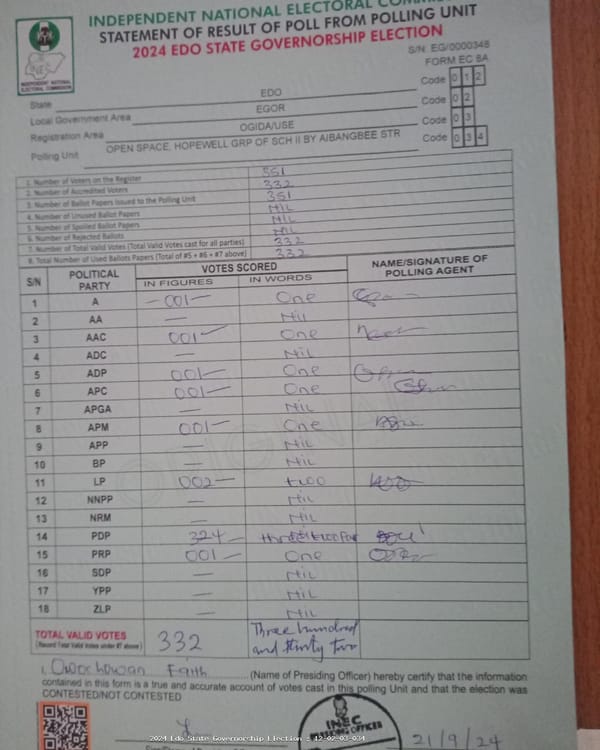 INDEPENDENT NATIONAL ELECTORAL COM
STATEMENT OF RESULT OF POLL FROM POLLING UNIT
2024 EDO STATE GOVERNORSHIP ELECTION
S/N: EG/0000348
FORM EC 8A
INEC
INDEPENDENT NATIONAL ELECTORAL COMMISSION
State EDO Code 0 1 2
Local Government Area EGOR Code 0 2
Registration Area OGIDA/USE Code 0 3
Polling Unit OPEN SPACE, HOPEWELL GRP OF SCH II BY AIBANGBEE STR Code 0 3 4
1. Number of Voters on the Register 351
2. Number of Accredited Voters 332
3. Number of Ballot Papers Issued to the Polling Unit 351
4. Number of Unused Ballot Papers NIL
5. Number of Spoiled Ballot Papers NIL
6. Number of Rejected Ballots NIL
7. Number of Total Valid Votes (Total Valid Votes cast for all parties) 332
8. Total Number of Used Ballots Papers (Total of #5 + #6 + #7 above) 332
S/N POLITICAL PARTY VOTES SCORED NAME/SIGNATURE OF POLLING AGENT
IN FIGURES IN WORDS
1 A -001- One
2 AA — Nil
3 AAC 001- One
4 ADC — NIL
5 ADP 001- One
6 APC 001- One
7 APGA — NIL
8 APM 001- One
9 APP — NIL
10 BP — NIL
11 LP 002- two
12 NNPP — NIL
13 NRM — NIL
14 PDP 324-
15 PRP 001- One
16 SDP — NIL
17 YPP — NIL
18 ZLP — NIL
TOTAL VALID VOTES 332 Three hundred
(Record Total Valid Votes under #7 above) and thirty two
I, Faith (Name of Presiding Officer) hereby certify that the information
contained in this form is a true and accurate account of votes cast in this polling Unit and that the election was
CONTESTED/NOT CONTESTED
INEC
21/9/24
2024 Edo State Governorship Election : 12-02-03-034